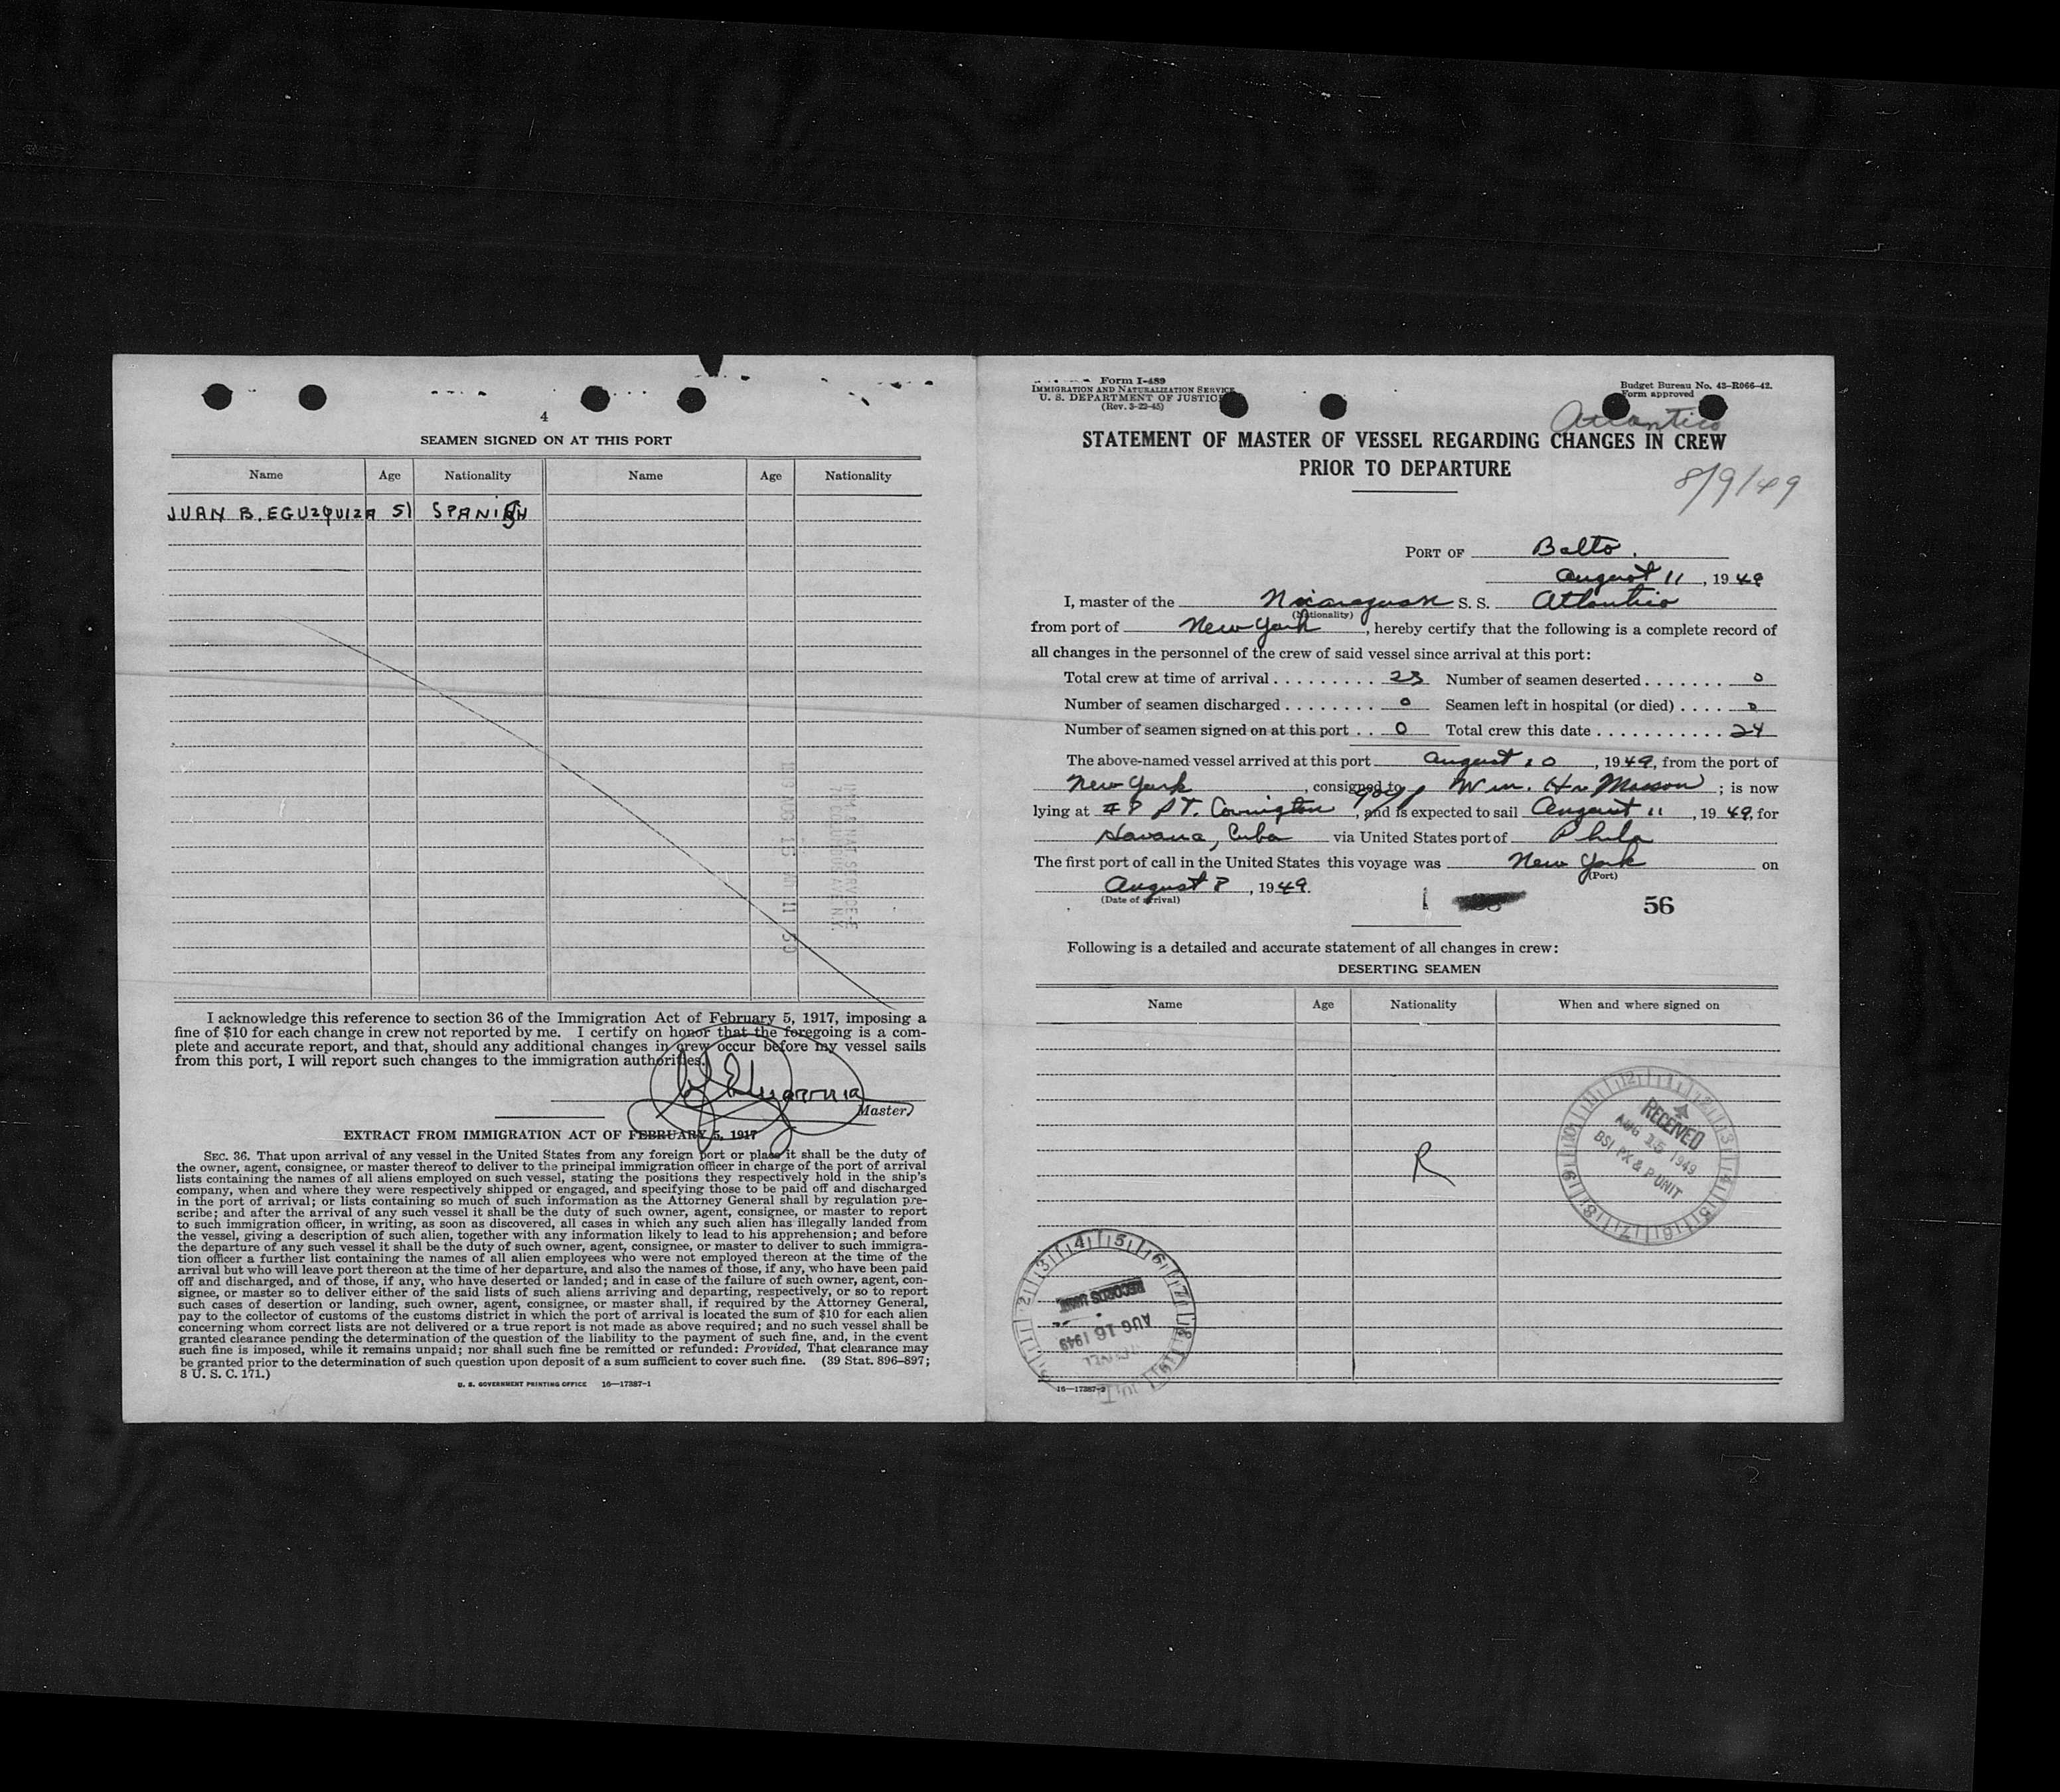 4
SEAMEN SIGNED ON AT THIS PORT
Name Age Nationality Name Age Nationality
JUAN B. EGUZQUIZA 51 SPANISH
I acknowledge this reference to section 36 of the Immigration Act of February 5, 1917, imposing a
fine of $10 for each change in crew not reported by me. I certify on honor that the foregoing is a com-
plete and accurate report, and that, should any additional changes in crew occur before my vessel sails
from this port, I will report such changes to the immigration authorities.
Master
EXTRACT FROM IMMIGRATION ACT OF FEBRUARY 5, 1917
SEC. 36. That upon arrival of any vessel in the United States from any foreign port or place it shall be the duty of
the owner, agent, consignee, or master thereof to deliver to the principal immigration officer in charge of the port of arrival
lists containing the names of all aliens employed on such vessel, stating the positions they respectively hold in the ship's
company, when and where they were respectively shipped or engaged, and specifying those to be paid off and discharged
in the port of arrival; or lists containing so much of such information as the Attorney General shall by regulation pre-
scribe; and after the arrival of any such vessel it shall be the duty of such owner, agent, consignee, or master to report
to such immigration officer, in writing, as soon as discovered, all cases in which any such alien has illegally landed from
the vessel, giving a description of such alien, together with any information likely to lead to his apprehension; and before
the departure of any such vessel it shall be the duty of such owner, agent, consignee, or master to deliver to such immigra-
tion officer a further list containing the names of all alien employees who were not employed thereon at the time of the
arrival but who will leave port thereon at the time of her departure, and also the names of those, if any, who have been paid
off and discharged, and of those, if any, who have deserted or landed; and in case of the failure of such owner, agent, con-
signee, or master so to deliver either of the said lists of such aliens arriving and departing, respectively, or so to report
such cases of desertion or landing, such owner, agent, consignee, or master shall, if required by the Attorney General,
pay to the collector of customs of the customs district in which the port of arrival is located the sum of $10 for each alien
concerning whom correct lists are not delivered or a true report is not made as above required; and no such vessel shall be
granted clearance pending the determination of the question of the liability to the payment of such fine, and, in the event
such fine is imposed, while it remains unpaid; nor shall such fine be remitted or refunded: Provided, That clearance may
be granted prior to the determination of such question upon deposit of a sum sufficient to cover such fine. (39 Stat. 896-897;
8 U. S. C. 171.)
U. S. GOVERNMENT PRINTING OFFICE 16—17387-1
Form I-489
IMMIGRATION AND NATURALIZATION SERVICE
U. S. DEPARTMENT OF JUSTICE
(Rev. 3-22-45)
Budget Bureau No. 43-R066-42.
Form approved
Atlantico
STATEMENT OF MASTER OF VESSEL REGARDING CHANGES IN CREW
PRIOR TO DEPARTURE
8/9/49
PORT OF Balto.
August 11, 1949
I, master of the Nicaraguan S. S. Atlantico
(Nationality)
from port of New York, hereby certify that the following is a complete record of
all changes in the personnel of the crew of said vessel since arrival at this port:
Total crew at time of arrival 23 Number of seamen deserted 0
Number of seamen discharged 0 Seamen left in hospital (or died) 0
Number of seamen signed on at this port 0 Total crew this date 24
The above-named vessel arrived at this port August 10, 1949, from the port of
New York, consigned to Wm. H. Masson; is now
lying at #8 PT. Covington, and is expected to sail August 11, 1949, for
Havana, Cuba via United States port of Phila
The first port of call in the United States this voyage was New York on
(Port)
August 8, 1949.
(Date of arrival)
56
Following is a detailed and accurate statement of all changes in crew:
DESERTING SEAMEN
Name Age Nationality When and where signed on
R
RECEIVED
AUG 15 1949
BSI PX & P UNIT
RECORDS UNIT
AUG 16 1949
16—17387-2